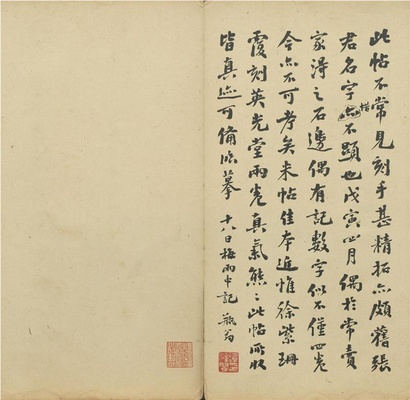 此帖不常見刻手甚精拓亦頗舊張
君名字亦不顯也戊寅四月偶於常賣
惜
家得之石邊偶有記數字似不僅四卷
今亦不可考矣米帖佳本近惟徐紫珊
覆刻英光堂兩卷真氣熊熊此帖所收
皆真迹可備臨摹
十八日梅雨中記 瓶翁